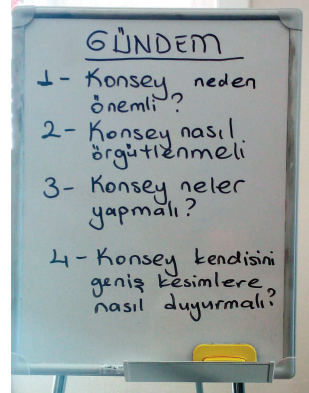 GÜNDEM
1- Konsey neden
önemli?
2- Konsey nasıl
örgütlenmeli
3- Konsey neler
yapmalı?
4- Konsey kendisini
geniş kesimlere
nasıl duyurmalı?